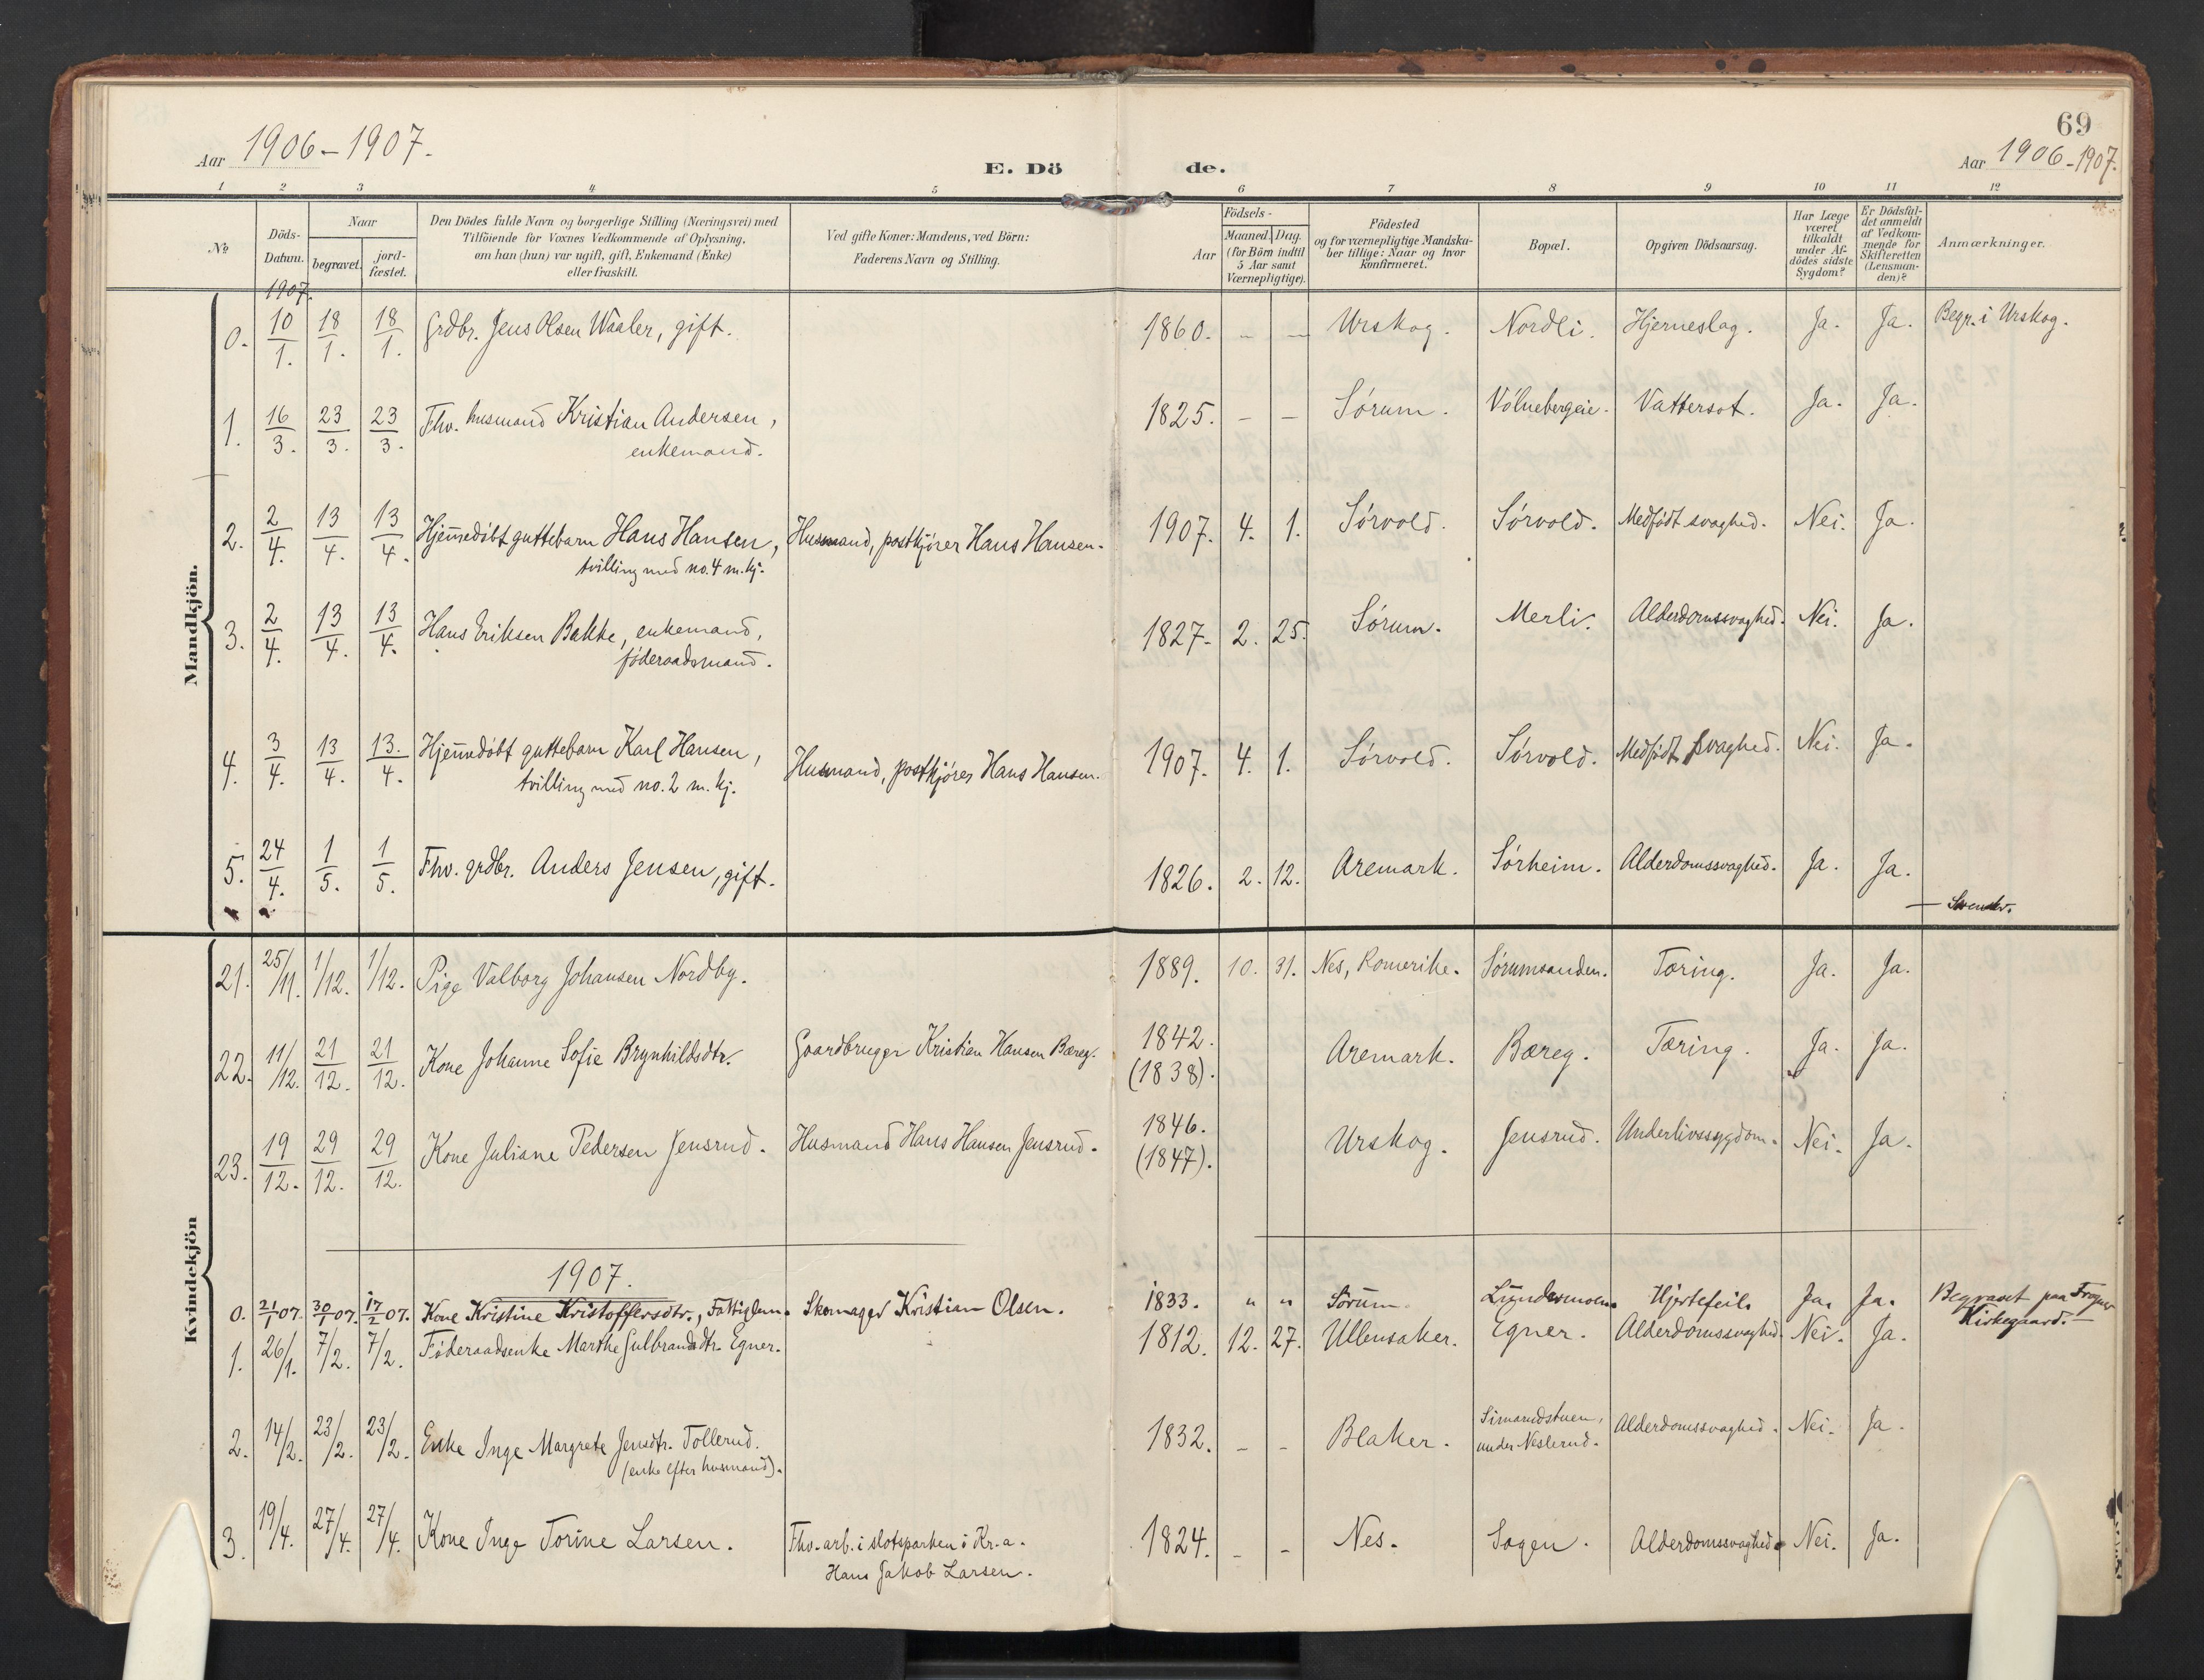 69
Aar 1906-1907.
E. Dö de.
Aar 1906-1907.
1 2 3 4 5 6 7 8 9 10 11 12
No
Döds-
Datum.
Naar
begravet.
jord-
fæstet.
Den Dödes fulde Navn og borgerlige Stilling (Næringsvei) med
Tilföiende for Voxnes Vedkommende af Oplysning,
om han (hun) var ugift, gift, Enkemand (Enke)
eller fraskilt.
Ved gifte Koner: Mandens, ved Börn:
Faderens Navn og Stilling.
Födsels-
Aar
Maaned. Dag.
(for Börn indtil
5 Aar samt
Værnepligtige).
Födested
og for værnepligtige Mandska-
ber tillige: Naar og hvor
konfirmeret.
Bopæl.
Opgiven Dödsaarsag.
Har Læge
været
tilkaldt
under Af-
dödes sidste
Sygdom?
Er Dödsfal-
det anmeldt
af Vedkom-
mende for
Skifteretten
(Lensman-
den)?
Anmærkninger.
Mandkjön.
1907.
0. 10/1. 18/1. 18/1. Grdbr. Jens Olsen Waaler, gift. 1860. - - Urskog. Nordli. Hjerneslag. Ja. Ja. Begr. i Urskog.
1. 16/3. 23/3. 23/3. Fhv. husmand Kristian Andersen, 1825. - - Sörum. Völnebergeie. Vattersot. Ja. Ja.
enkemand.
2. 2/4. 13/4. 13/4. Hjemmedöbt guttebarn Hans Hansen, Husmand, postkjörer Hans Hansen. 1907. 4. 1. Sörvold. Sörvold. Medfödt svaghed. Nei. Ja.
tvilling med no. 4 m. kj.
3. 2/4. 13/4. 13/4. Hans Eriksen Bakke, enkemand, 1827. 2. 25. Sörum. Merli. Alderdomssvaghed. Nei. Ja.
föderaadsmand.
4. 3/4. 13/4. 13./4. Hjemmedöbt guttebarn Karl Hansen, Husmand, postkjörer Hans Hansen. 1907. 4. 1. Sörvold. Sörvold. Medfödt svaghed. Nei. Ja.
tvilling med no. 2 m. kj.
5. 24/4. 1/5. 1/5. Fhv. grdbr. Anders Jensen, gift. 1826. 2. 12. Aremark. Sörheim. Alderdomssvaghed. Ja. Ja.
Kvindekjön
21. 25/11. 1/12. 1/12. Pige Valborg Johansen Nordby. 1889. 10. 31. Nes, Romerike. Sörumsanden. Tæring. Ja. Ja.
22. 11/12. 21/12. 21/12. Kone Johanne Sofie Brynhildsdtr. Gaardbruger Kristian Hansen Bæreg. 1842. (1838). Aremark. Bæreg. Tæring. Ja. Ja.
23. 19/12. 29/12. 29/12. Kone Juliane Pedersen Jensrud. Husmand Hans Hansen Jensrud. 1846. (1847). Urskog. Jensrud. Underlivssygdom. Nei. Ja.
1907.
0. 21/1 07. 30/1 07. 17/2 07. Kone Kristine Kristoffersdtr., Fattiglem. Skomager Kristian Olsen. 1833. " " Sörum. Lundermoen. Hjertefeil. Ja. Ja. Begravet paa Frogner
Kirkegaard.
1. 26/1. 7/2. 7/2. Föderaadsenke Marthe Gulbrandsdtr. Egner. 1812. 12. 27. Ullensaker. Egner. Alderdomssvaghed. Nei. Ja.
2. 14/2. 23/2. 23/2. Enke Inge Margrete Jensdtr. Tollerud. 1832. - - Blaker. Simarudstuen, Alderdomssvaghed. Nei. Ja.
(enke efter husmand). under Neslerud.
3. 19/4. 27/4. 27/4. Kone Inge Torine Larsen. Fhv. arb. i slotsparken i Kr.a. 1824. - - Nes. Sagen. Alderdomssvaghed. Nei. Ja.
Hans Jakob Larsen.